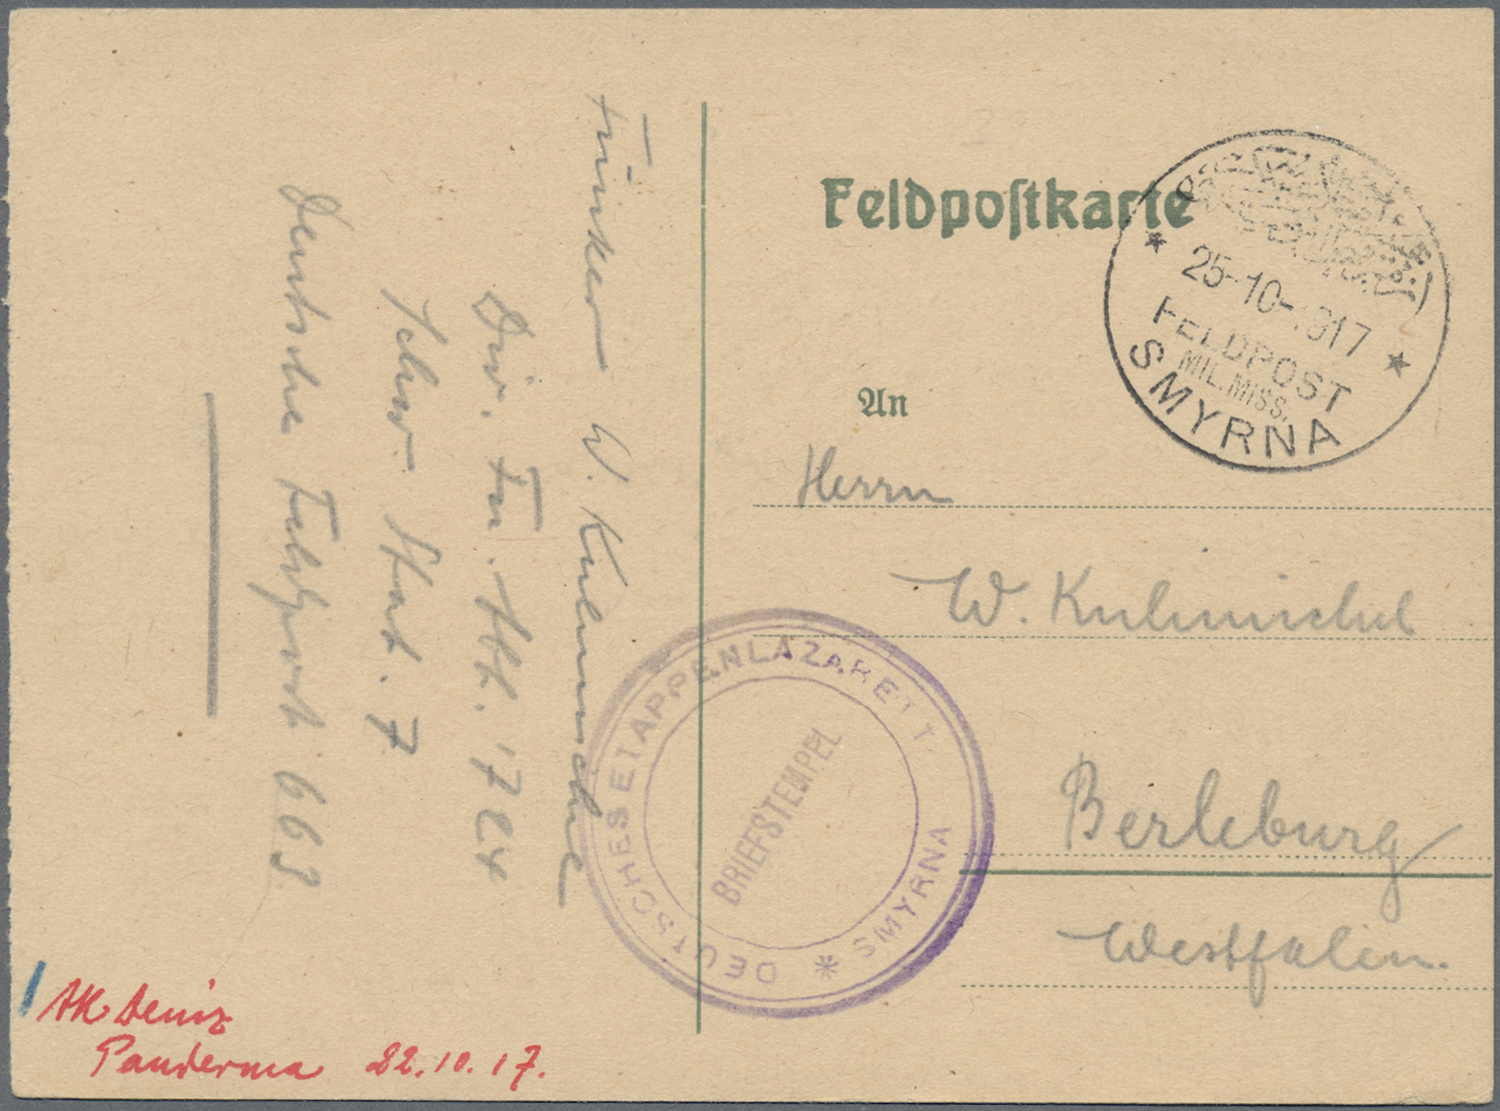 Feldpostkarte
25-10-1917
FELDPOST
MIL. MISS.
SMYRNA
An
Herrn
W. Kuhmichel
Berleburg
Westfalen.
DEUTSCHES ETAPPENLAZARETT
* SMYRNA
BRIEFSTEMPEL
Funker W. Kuhmichel
Div. Fu. Abt. 1724
Schw. Stat. 7
Deutsche Feldpost 663
AK Deniz
Panderma 22.10.17.